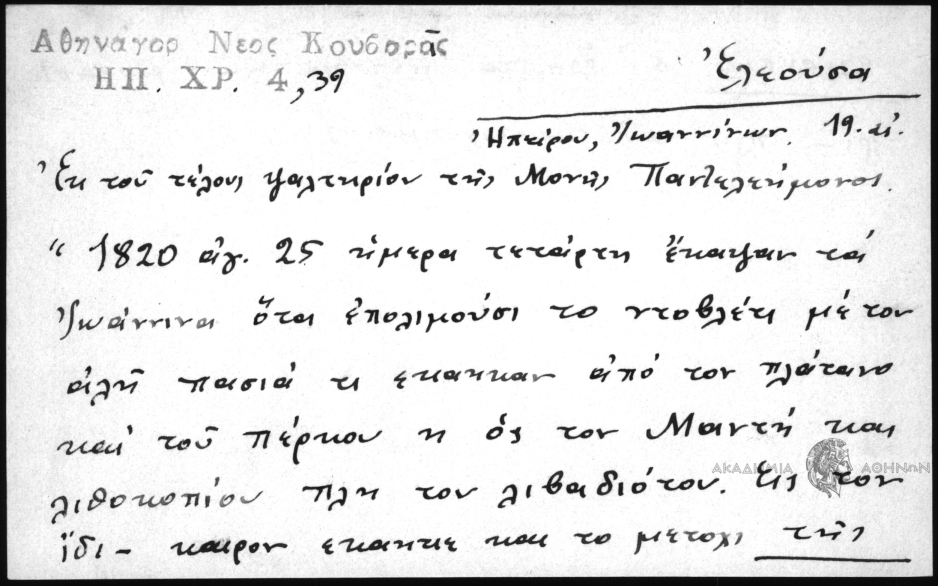 Αθηναγορ Νεος Κουβαρᾶς
ΗΠ. ΧΡ. 4, 39
Ἐλεούσα
Ἠπείρου, Ἰωαννίνων. 19. αἰ.
Ἐκ τοῦ τέλους ψαλτηρίου τῆς Μονῆς Παντελεήμονος.
" 1820 αὐγ. 25 ἡμερα τετάρτη ἔκαψαν τά
Ἰωάννινα ὅται ἐπολιμούσι το ντοβλέτι μέ τον
ἀλῆ πασιά τι εκαηκαν ἀπό τον πλάτανο
καί τοῦ πέρκου η ός τον Μαντή και
λιθοκοπίου πλη τον λιβαδιότου. Εἰς τον
ἴδι- καιρον εκαηκε και το μετοχι τῆς
ΑΚΑΔΗΜΙΑ ΑΘΗΝΩΝ